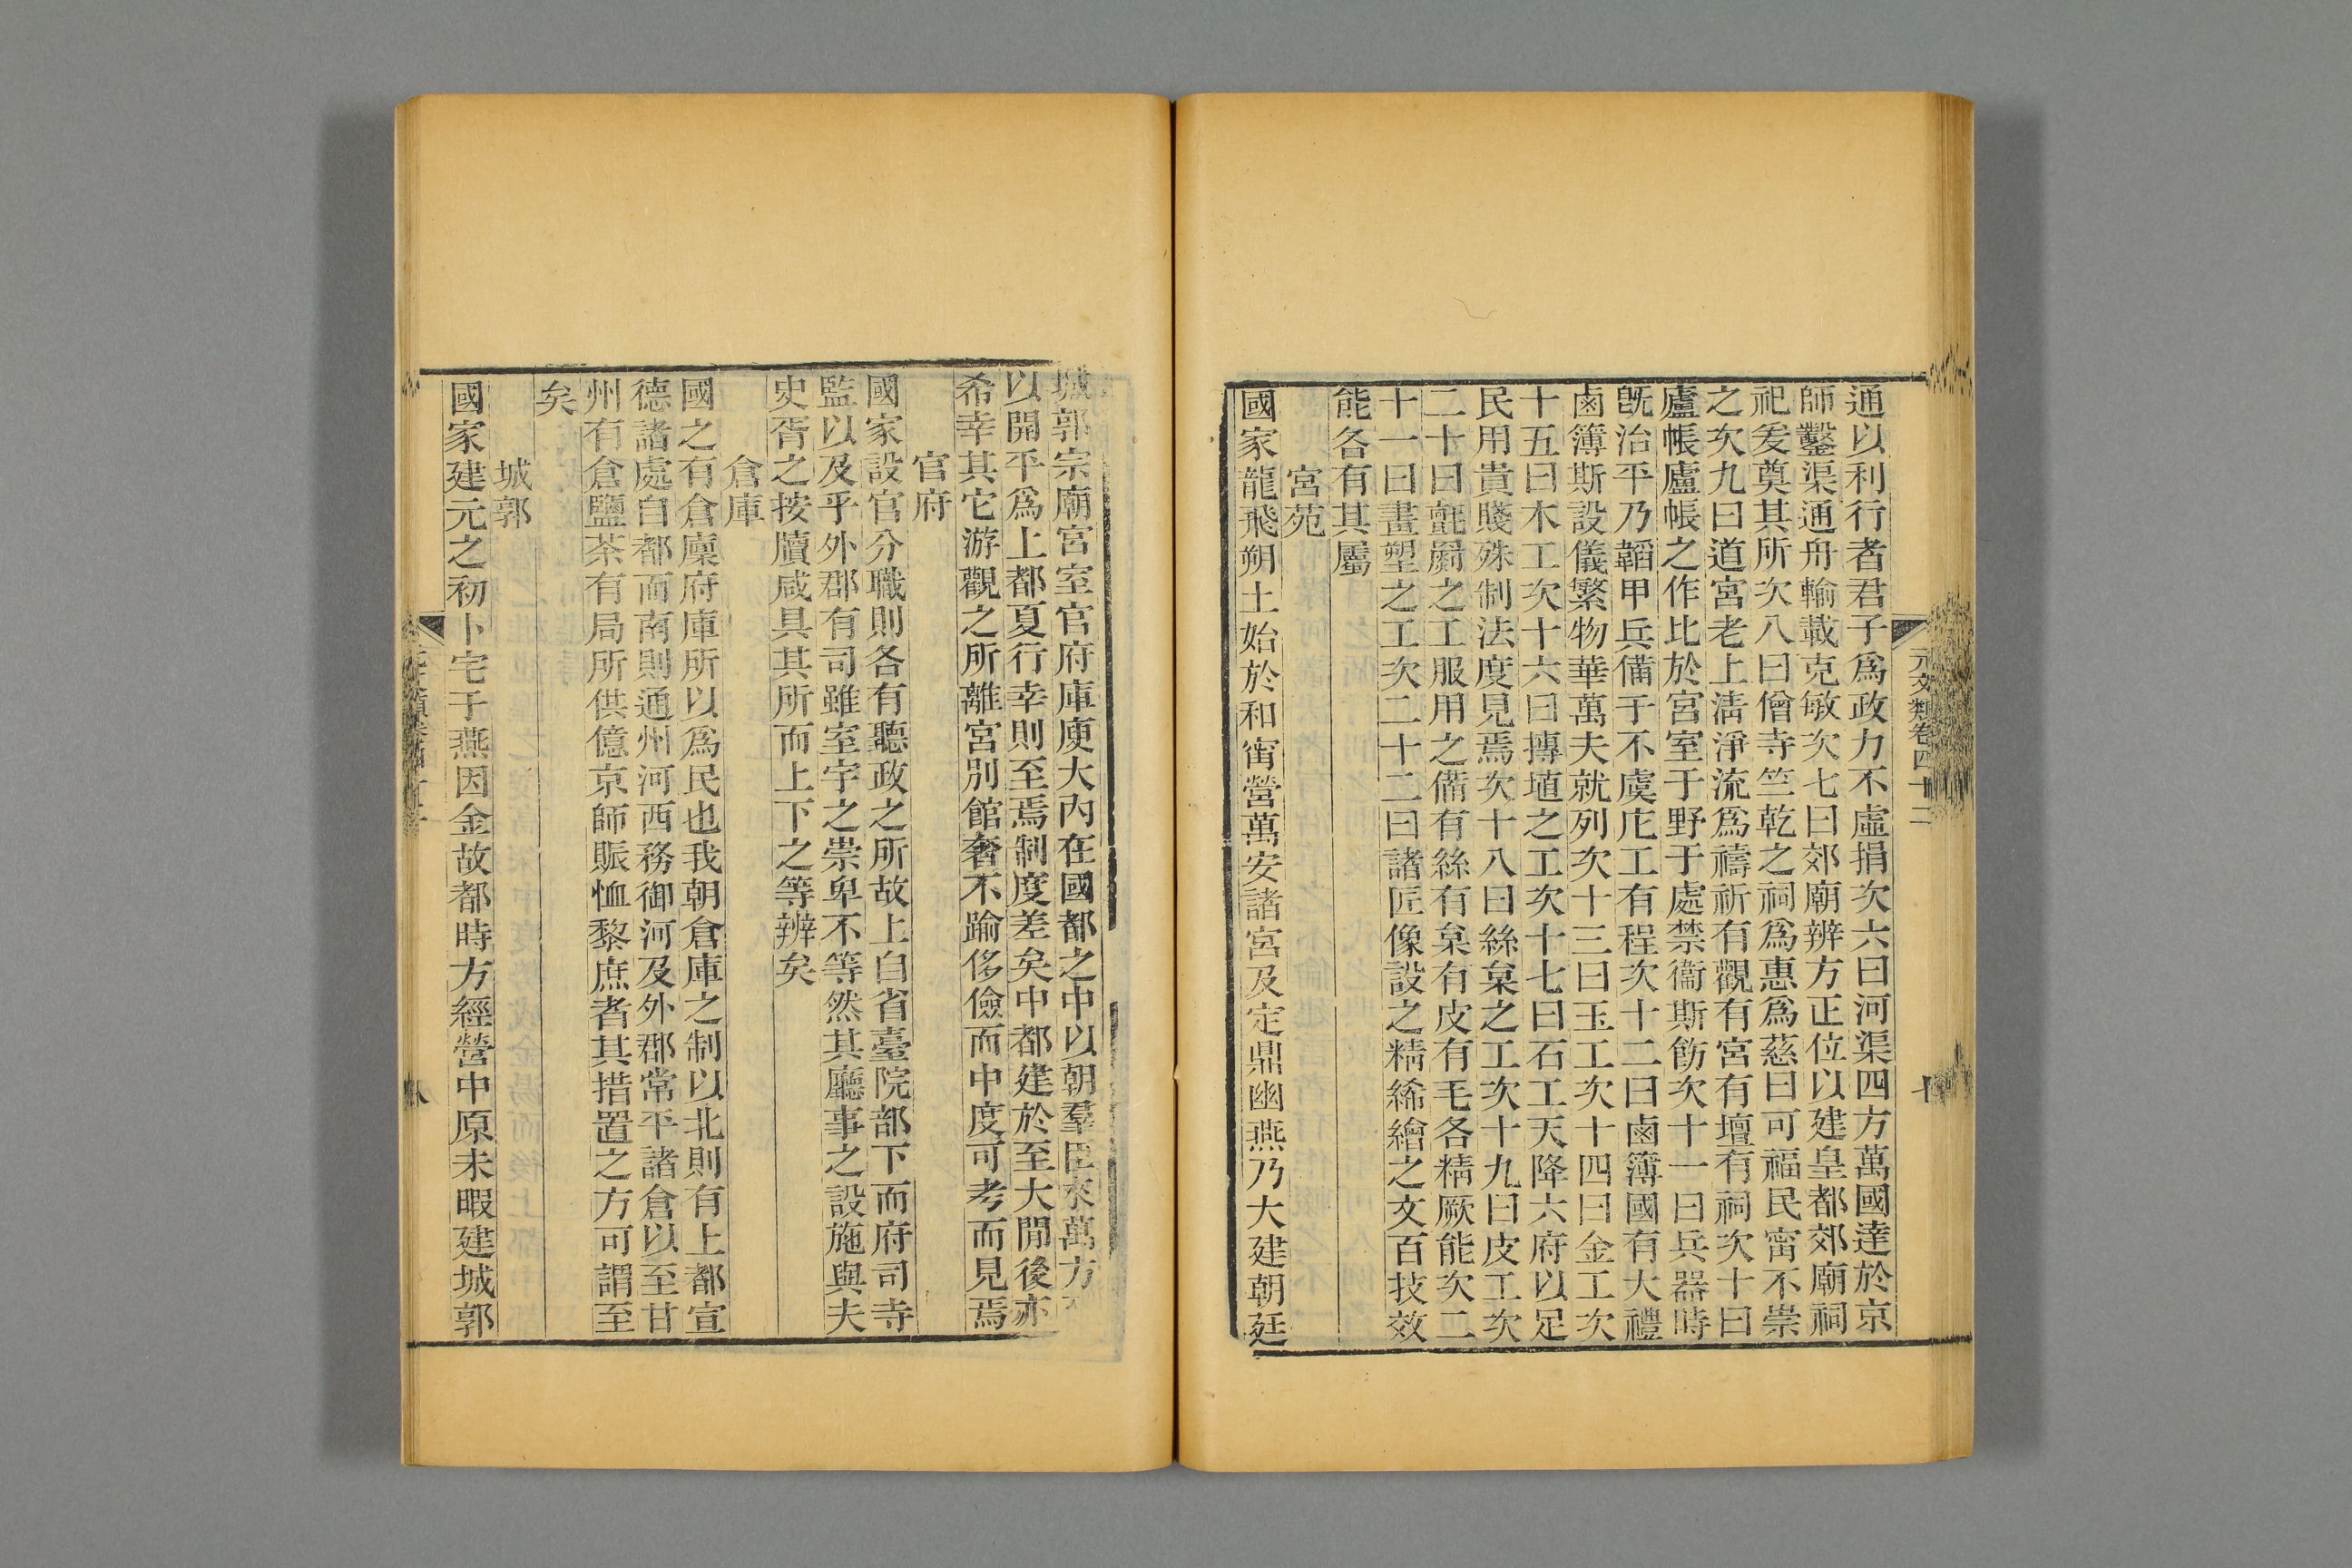 元文類卷四十二
通以利行者君子爲政力不虛捐次六曰河渠四方萬國達於京
師鑿渠通舟輸載克敏次七曰郊廟辨方正位以建皇都郊廟祠
祀爰奠其所次八曰僧寺竺乾之祠爲惠爲慈曰可福民甯不崇
之次九曰道宮老上淸淨流爲禱祈有觀有宮有壇有祠次十曰
廬帳廬帳之作比於宮室于野于處禁衞斯飭次十一曰兵器時
旣治平乃韜甲兵備于不虞庀工有程次十二曰鹵簿國有大禮
鹵簿斯設儀繁物華萬夫就列次十三曰玉工次十四曰金工次
十五曰木工次十六曰摶埴之工次十七曰石工天降六府以足
民用貴賤殊制法度見焉次十八曰絲枲之工次十九曰皮工次
二十曰氊罽之工服用之備有絲有枲有皮有毛各精厥能次二
十一曰畫塑之工次二十二曰諸匠像設之精絺繪之文百技效
能各有其屬
宮苑
國家龍飛朔土始於和甯營萬安諸宮及定鼎幽燕乃大建朝廷
城郭宗廟宮室官府庫庾大內在國都之中以朝羣臣來萬方
以開平爲上都夏行幸則至焉制度差矣中都建於至大閒後亦
希幸其它游觀之所離宮別館奢不踰侈儉而中度可考而見焉
官府
國家設官分職則各有聽政之所故上自省臺院部下而府司寺
監以及乎外郡有司雖室宇之崇卑不等然其廳事之設施與夫
史胥之按牘咸具其所而上下之等辨矣
倉庫
國之有倉廩府庫所以爲民也我朝倉庫之制以北則有上都宣
德諸處自都而南則通州河西務御河及外郡常平諸倉以至甘
州有倉鹽茶有局所供億京師賑恤黎庶者其措置之方可謂至
矣
城郭
國家建元之初卜宅于燕因金故都時方經營中原未暇建城郭